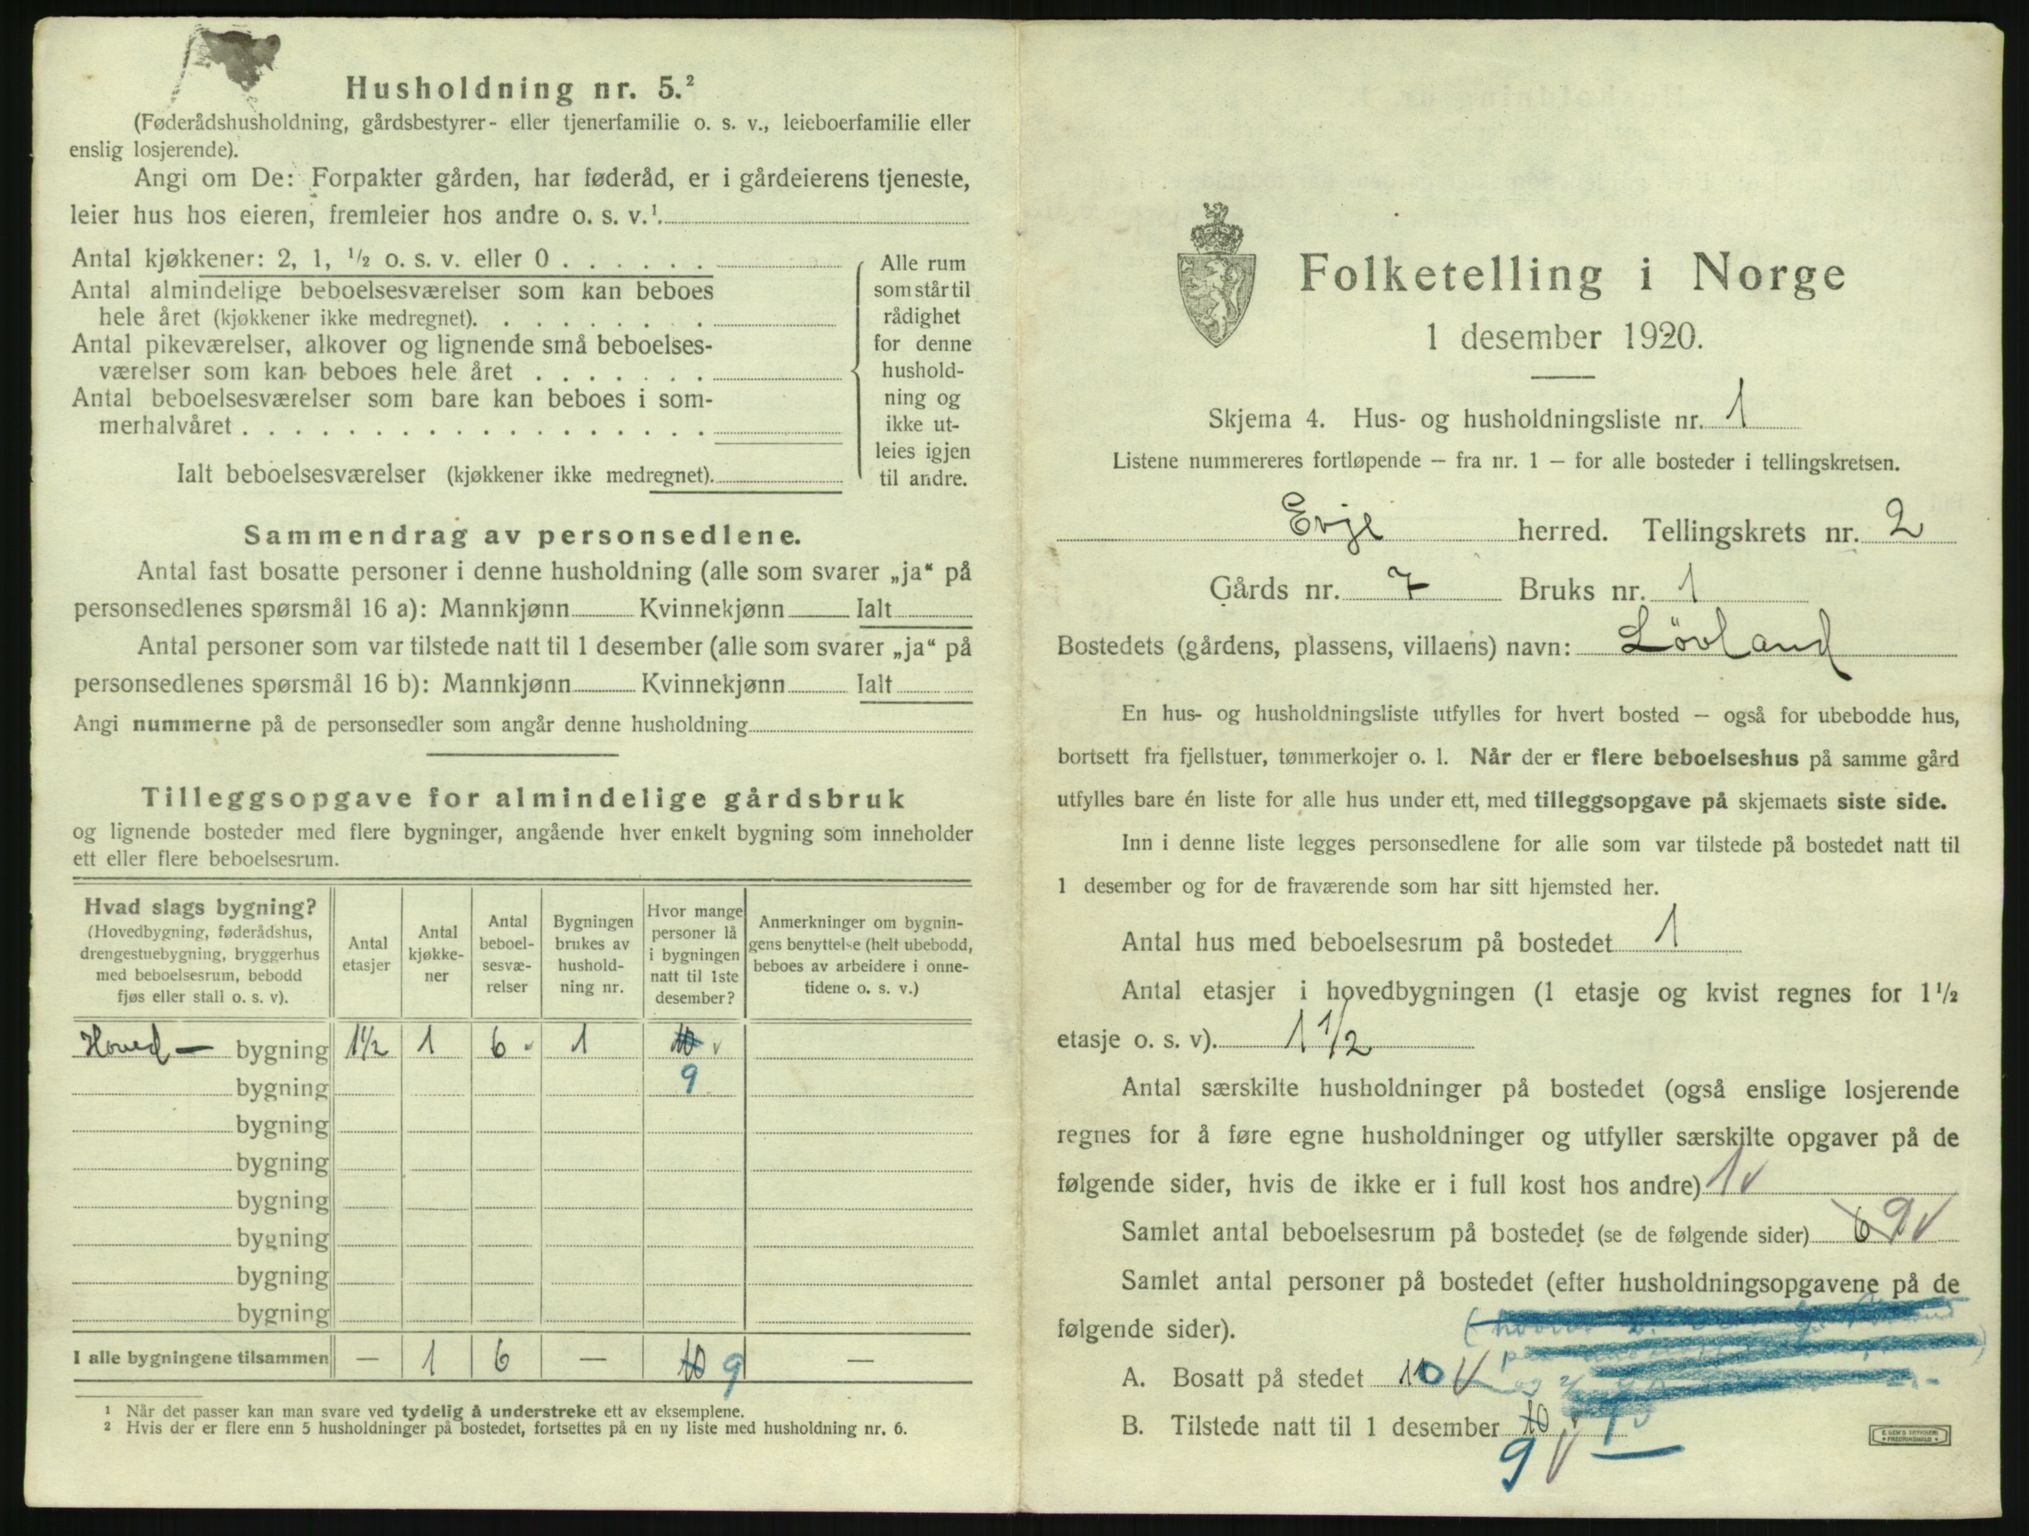 Husholdning nr. 5.²
(Føderådshusholdning, gårdsbestyrer- eller tjenerfamilie o. s. v., leieboerfamilie eller
enslig losjerende).
Angi om De: Forpakter gården, har føderåd, er i gårdeierens tjeneste,
leier hus hos eieren, fremleier hos andre o. s. v.¹
Antal kjøkkener: 2, 1, ½ o. s. v. eller 0 . . . . . .
Antal almindelige beboelsesværelser som kan beboes
hele året (kjøkkener ikke medregnet). . . . . . . . .
Antal pikeværelser, alkover og lignende små beboelses-
værelser som kan beboes hele året . . . . . . .
Antal beboelsesværelser som bare kan beboes i som-
merhalvåret . . . . . . . . . . . . . . . . . .
Ialt beboelsesværelser (kjøkkener ikke medregnet).
Alle rum
som står til
rådighet
for denne
hushold-
ning og
ikke ut-
leies igjen
til andre.
Sammendrag av personsedlene.
Antal fast bosatte personer i denne husholdning (alle som svarer „ja“ på
personsedlenes spørsmål 16 a): Mannkjønn Kvinnekjønn Ialt
Antal personer som var tilstede natt til 1 desember (alle som svarer „ja“ på
personsedlenes spørsmål 16 b): Mannkjønn Kvinnekjønn Ialt
Angi nummerne på de personsedler som angår denne husholdning
Tilleggsopgave for almindelige gårdsbruk
og lignende bosteder med flere bygninger, angående hver enkelt bygning som inneholder
ett eller flere beboelsesrum.
Hvad slags bygning?
(Hovedbygning, føderådshus,
drengestuebygning, bryggerhus
med beboelsesrum, bebodd
fjøs eller stall o. s. v).
Antal
etasjer
Antal
kjøkke-
ner
Antal
beboel-
sesvæ-
relser
Bygningen
brukes av
hushold-
ning nr.
Hvor mange
personer lå
i bygningen
natt til 1ste
desember?
Anmerkninger om bygnin-
gens benyttelse (helt ubebodd,
beboes av arbeidere i onne-
tidene o. s. v.)
Hoved — bygning 1½ 1 6 1 10 v
bygning 9
bygning
bygning
bygning
bygning
bygning
bygning
I alle bygningene tilsammen — 1 6 — 10 9 —
¹ Når det passer kan man svare ved tydelig å understreke ett av eksemplene.
² Hvis der er flere enn 5 husholdninger på bostedet, fortsettes på en ny liste med husholdning nr. 6.
Folketelling i Norge
1 desember 1920.
Skjema 4. Hus- og husholdningsliste nr. 1
Listene nummereres fortløpende – fra nr. 1 – for alle bosteder i tellingskretsen.
Evje herred. Tellingskrets nr. 2
Gårds nr. 7 Bruks nr. 1
Bostedets (gårdens, plassens, villaens) navn: Løvland
En hus- og husholdningsliste utfylles for hvert bosted – også for ubebodde hus,
bortsett fra fjellstuer, tømmerkojer o. l. Når der er flere beboelseshus på samme gård
utfylles bare én liste for alle hus under ett, med tilleggsopgave på skjemaets siste side.
Inn i denne liste legges personsedlene for alle som var tilstede på bostedet natt til
1 desember og for de fraværende som har sitt hjemsted her.
Antal hus med beboelsesrum på bostedet 1
Antal etasjer i hovedbygningen (1 etasje og kvist regnes for 1½
etasje o. s. v). 1½
Antal særskilte husholdninger på bostedet (også enslige losjerende
regnes for å føre egne husholdninger og utfyller særskilte opgaver på de
følgende sider, hvis de ikke er i full kost hos andre) 1 v
Samlet antal beboelsesrum på bostedet (se de følgende sider) 6 9 v
Samlet antal personer på bostedet (efter husholdningsopgavene på de
følgende sider).
A. Bosatt på stedet 10 v
B. Tilstede natt til 1 desember 10
9 v